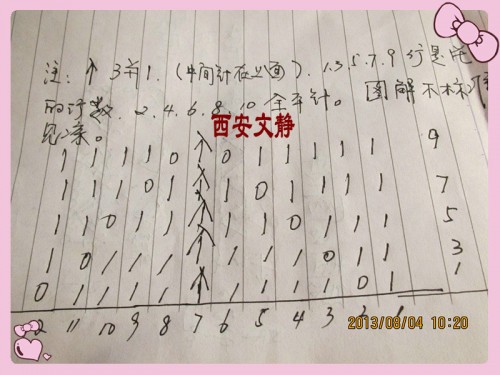 注:↑3并1.(中间针在上面).1.3.5.7.9行是花
的行数.2.4.6.8.10全平针。图解不标
见谅。
西安文静
1 1 1 1 0 ↑ 0 1 1 1 1 1 9
1 1 1 0 1 ↑ 1 0 1 1 1 1 7
1 1 0 1 1 ↑ 1 1 0 1 1 1 5
1 0 1 1 1 ↑ 1 1 1 0 1 1 3
0 1 1 1 1 ↑ 1 1 1 1 0 1 1
12 11 10 9 8 7 6 5 4 3 2 1
2013/09/04 10:20